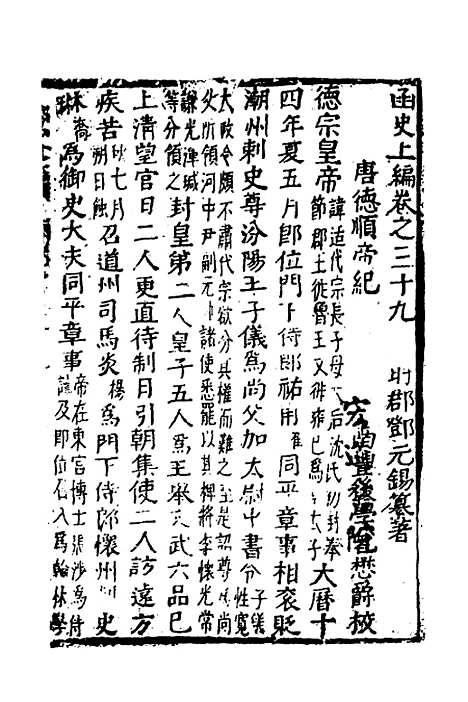 函史上編卷之三十九
盱郡鄧元錫纂著
南豐後學 懋爵校
唐德順帝紀
德宗皇帝諱适代宗長子母 后沈氏初封奉
節郡王徙魯王又徙雍已爲 太子大曆十
四年夏五月即位門下侍郎祐甫 同平章事相袞貶
潮州刺史尊汾陽王子儀爲尚父加太尉中書令子儀性寬
大政令頗不肅代宗欲分其權而難之 至是詔尊 尚
父所領河中尹副元帥諸使悉罷以其裨將李懷光常
謙光渾瑊
等分領之封皇弟二人皇子五人爲王舉文武六品已
上清望官日二人更直待制日引朝集使二人訪遠方
疾苦秋七月
朔日蝕召道州司馬炎楊爲門下侍郎懷州刺史
琳喬爲御史大夫同平章事帝在東宮博士張涉爲侍
讀及即位召入爲翰林學